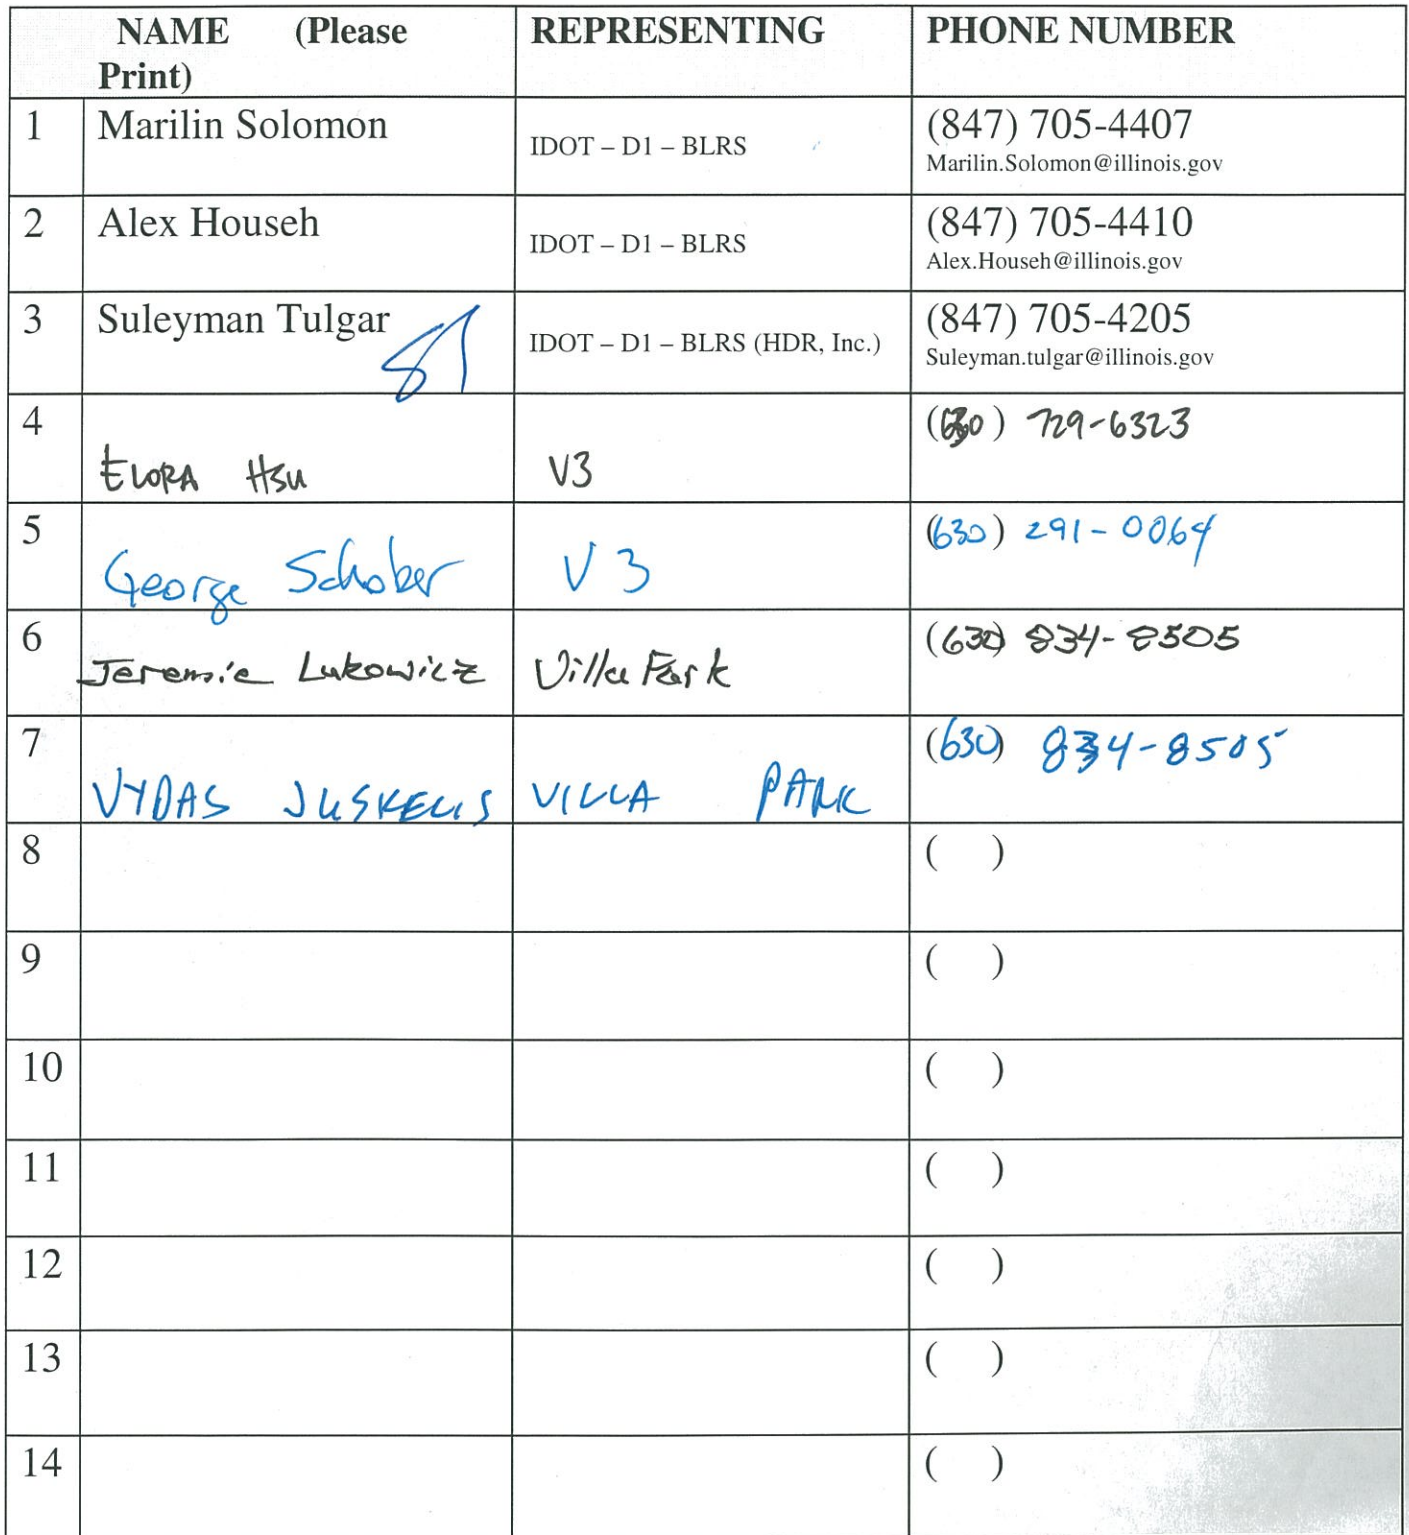 NAME (Please Print) REPRESENTING PHONE NUMBER
1 Marilin Solomon IDOT – D1 – BLRS (847) 705-4407
Marilin.Solomon@illinois.gov
2 Alex Househ IDOT – D1 – BLRS (847) 705-4410
Alex.Househ@illinois.gov
3 Suleyman Tulgar ST IDOT – D1 – BLRS (HDR, Inc.) (847) 705-4205
Suleyman.tulgar@illinois.gov
4 ELORA HSU V3 (630) 729-6323
5 George Schober V3 (630) 291-0064
6 Jeremie Lukowicz Villa Park (630) 834-8505
7 VYDAS JUSKELIS VILLA PARK (630) 834-8505
8 ( )
9 ( )
10 ( )
11 ( )
12 ( )
13 ( )
14 ( )